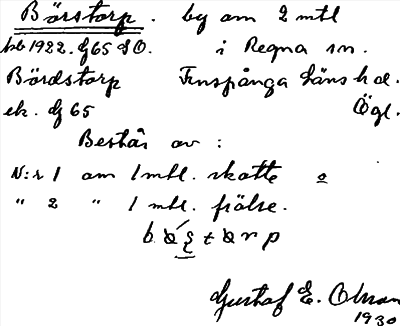 Börstorp. by om 2 mtl
jb 1922. df 65 SO. i Regna sn.
Bördstorp Finspånga läns hd.
ek. df 65 Ögl.
Består av:
N:r 1 om 1 mtl. skatte o
" 2 " 1 mtl. frälse.
Gustaf E. Olsson
1930